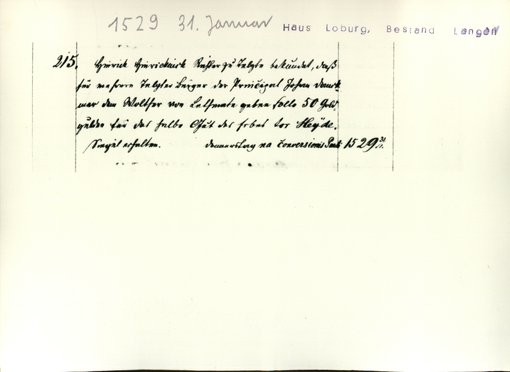 1529 31. Januar Haus Loburg, Bestand Langen
215. Hinrich Richter zu Telgte bekundet, daß
für mehrere Telgter Bürger der Prinzipal Johan
mar dem Wolther von Letmate geben solle 50 Gold
gulden für das halbe des Erbes tor Heyde.
Siegel erhalten. donnerstag na Conversionis Pauli 1529 31/1.